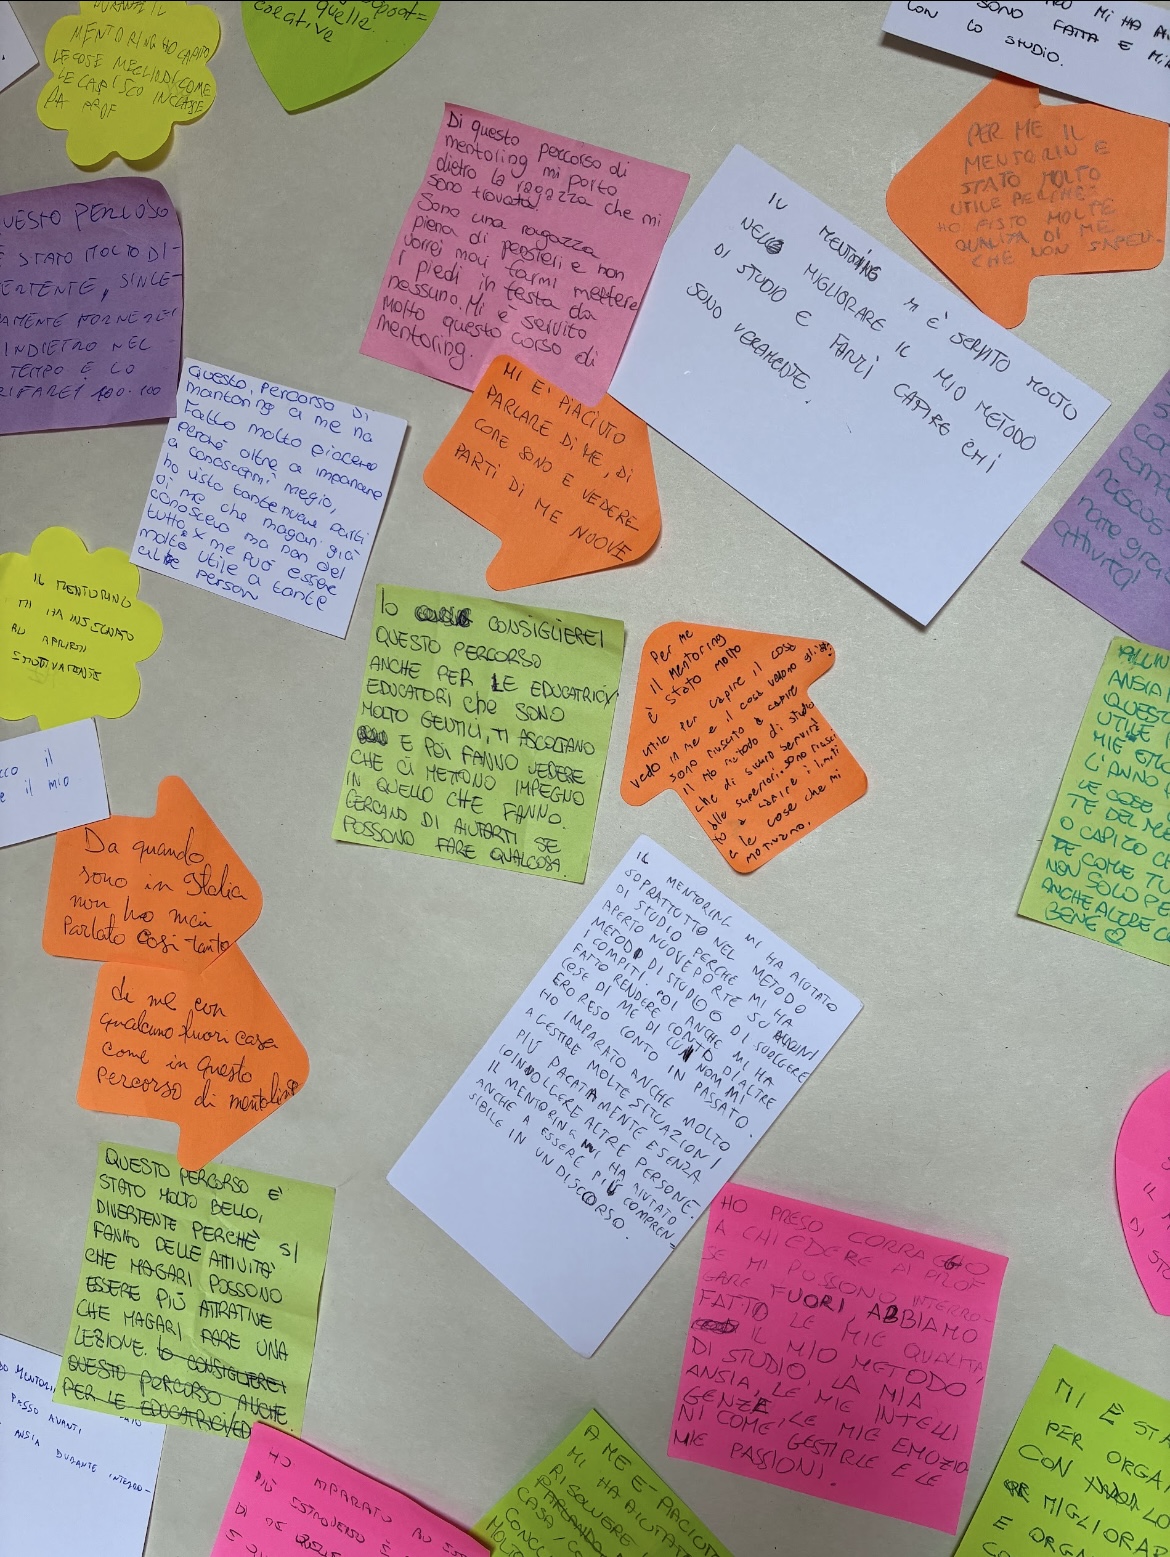 MENTORING HO CAPITO
LE COSE MEGLIO DI COME
LE CAPISCO IN CLASSE
DA PROF
quelle
creative
MI HA
SONO FATTA E
CON LO STUDIO.
PER ME IL
MENTORIN E
STATO MOLTO
UTILE PERCHE'
HO VISTO MOLTE
QUALITA DI ME
CHE NON SAPEV-
Di questo percorso di
mentoring mi porto
dietro la ragazza che mi
sono trovata.
Sono una ragazza
piena di pensieri e non
vorrei mai farmi mettere
i piedi in testa da
nessuno. Mi è servito
molto questo corso di
mentoring.
IL MENTORING M È SERVITO MOLTO
NELO MIGLIORARE IL MIO METODO
DI STUDIO E FARTI CAPIRE CHI
SONO VERAMENTE.
UESTO PERCOSO
È STATO MOLTO DI-
ERTENTE, SINCE-
AMENTE TORNEREI
INDIETRO NEL
TEMPO E LO
RIFAREI 100.100
Questo percorso di
mantoring a me ha
fatto molto piacere
perché oltre a imparare
a conoscermi megio,
ho visto tante nuove parti
di me che magari già
conoscevo ma non del
tutto, x me può essere
molto utile a tante
altre person
MI E' PIACIUTO
PARLARE DI ME, DI
COME SONO E VEDERE
PARTI DI ME NUOVE
IL MENTORING
MI HA INSEGNATO
AD APRIRMI
EMOTIVAMENTE
Io CONSIGLIEREI
QUESTO PERCORSO
ANCHE PER LE EDUCATRICI/
EDUCATORI CHE SONO
MOLTO GENTILI, TI ASCOLTANO
E POI FANNO VEDERE
CHE CI METTONO IMPEGNO
IN QUELLO CHE FANNO.
CERCANO DI AIUTARTI SE
POSSONO FARE QUALCOSA.
Per me
il mentoring
è stato molto
utile per capire il cosa
vedo in me e il cosa vedono gli altri
sono riuscito a capire
il mio metodo di studio
che di sicuro servirà
alle superiori.. sono riusci
to a capire i limiti
e le cose che mi
motivano.
attività!
ANSIA
QUESTO
UTILE
MIE
L'ANNO
LE COSE
TE DEL
O CAPITO
TE COME
NON SOLO PE
ANCHE ALTRE
BENE
il
e il mio
Da quando
sono in Italia
non ho mai
Parlato così tanto
di me con
qualcuno fuori casa
come in questo
percorso di mentoring
IL MENTORING MI HA AIUTATO
SOPRATTUTTO NEL METODO
DI STUDIO PERCHE MI HA
APERTO NUOVE PORTE SU ALCUNI
METODO DI STUDIO O DI SVOLGERE
I COMPITI. POI ANCHE MI HA
FATTO RENDERE CONTO DI ALTRE
COSE DI ME DI CUI NOM MI
ERO RESO CONTO IN PASSATO.
HO IMPARATO ANCHE MOLTO
A GESTIRE MOLTE SITUAZIONI
PIÙ PACATAMENTE E SENZA
COINVOLGERE ALTRE PERSONE.
IL MENTORING MI HA AIUTATO
ANCHE A ESSERE PIÙ COMPREN-
SIBILE IN UN DISCORSO.
QUESTO PERCORSO E'
STATO MOLTO BELLO,
DIVERTENTE PERCHÈ SI
FANNO DELLE ATTIVITA'
CHE MAGARI POSSONO
ESSERE PIÙ ATTRATIVE
CHE MAGARI FARE UNA
LEZIONE. IO CONSIGLIEREI
QUESTO PERCORSO ANCHE
PER LE EDUCATRICI/ED
HO PRESO CORAGGIO
A CHIEDERE AI PROF
SE MI POSSONO INTERRO-
GARE FUORI, ABBIAMO
FATTO LE MIE QUALITA,
IL MIO METODO
DI STUDIO, LA MIA
ANSIA, LE MIE INTELLI
GENZE, LE MIE EMOZIO
NI COME GESTIRLE E LE
MIE PASSIONI.
PASSO AVANTI.
ANSIA DURANTE INTERRO-
HO IMPARATO AD
PIÙ ESTROVERSO E
DI
A ME E' PIACIUT
MI HA AIUTAT
RISOLVERE
PARLANDO
CASA/
MOLTO
MI È STA
PER ORGA
CON
MIGLIORAR
E ORGA